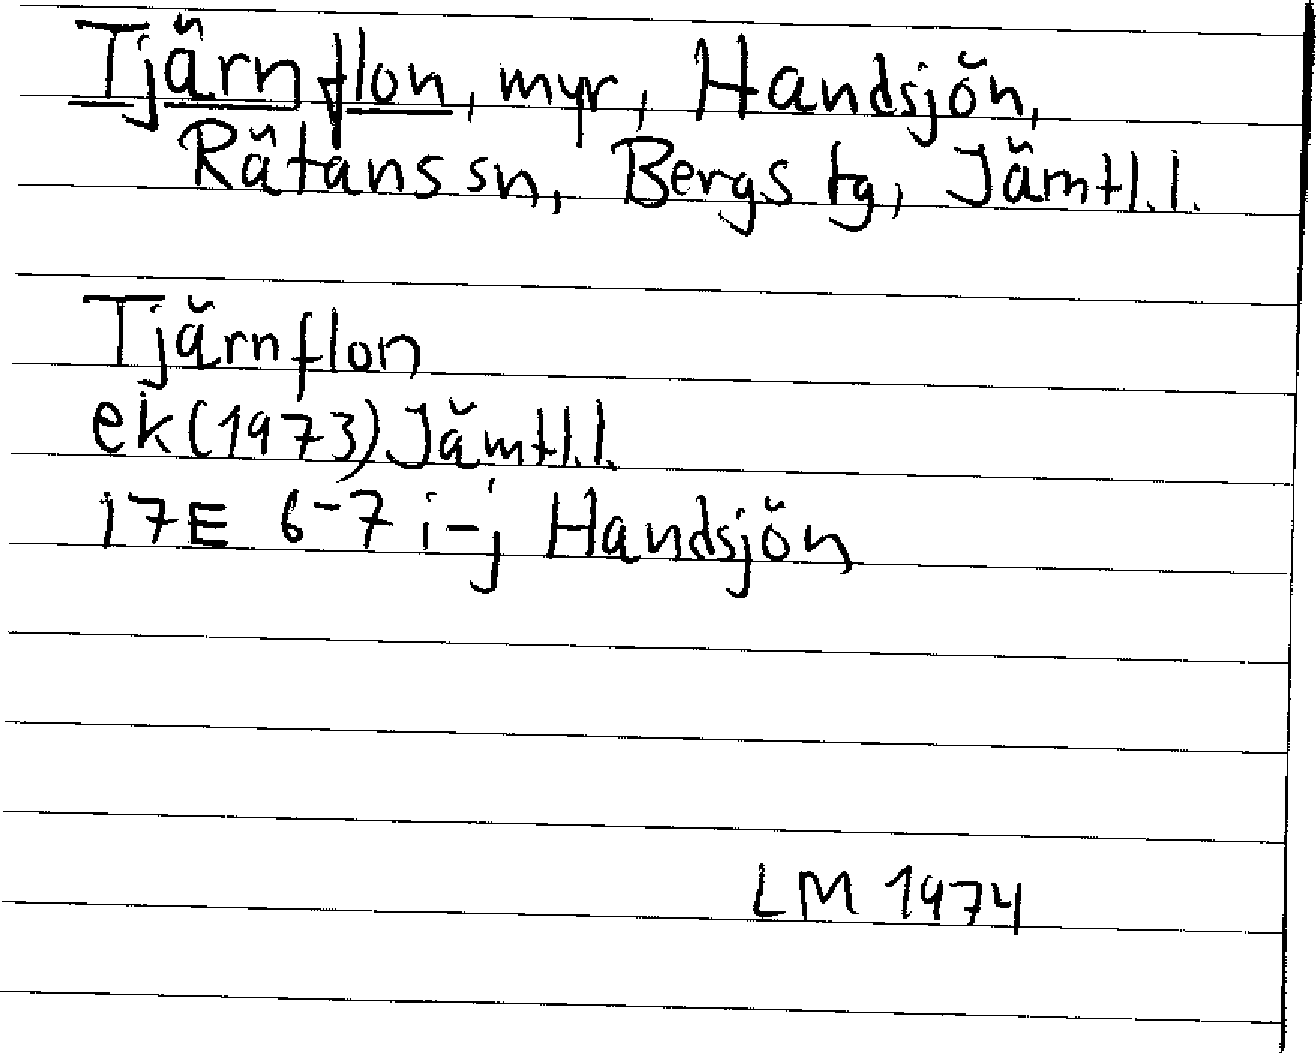 Tjärnflon, myr, Handsjön,
Rätans sn, Bergs tg, Jämtl.l.
Tjärnflon
ek (1973) Jämtl.l.
17E 6-7 i-j Handsjön
LM 1974